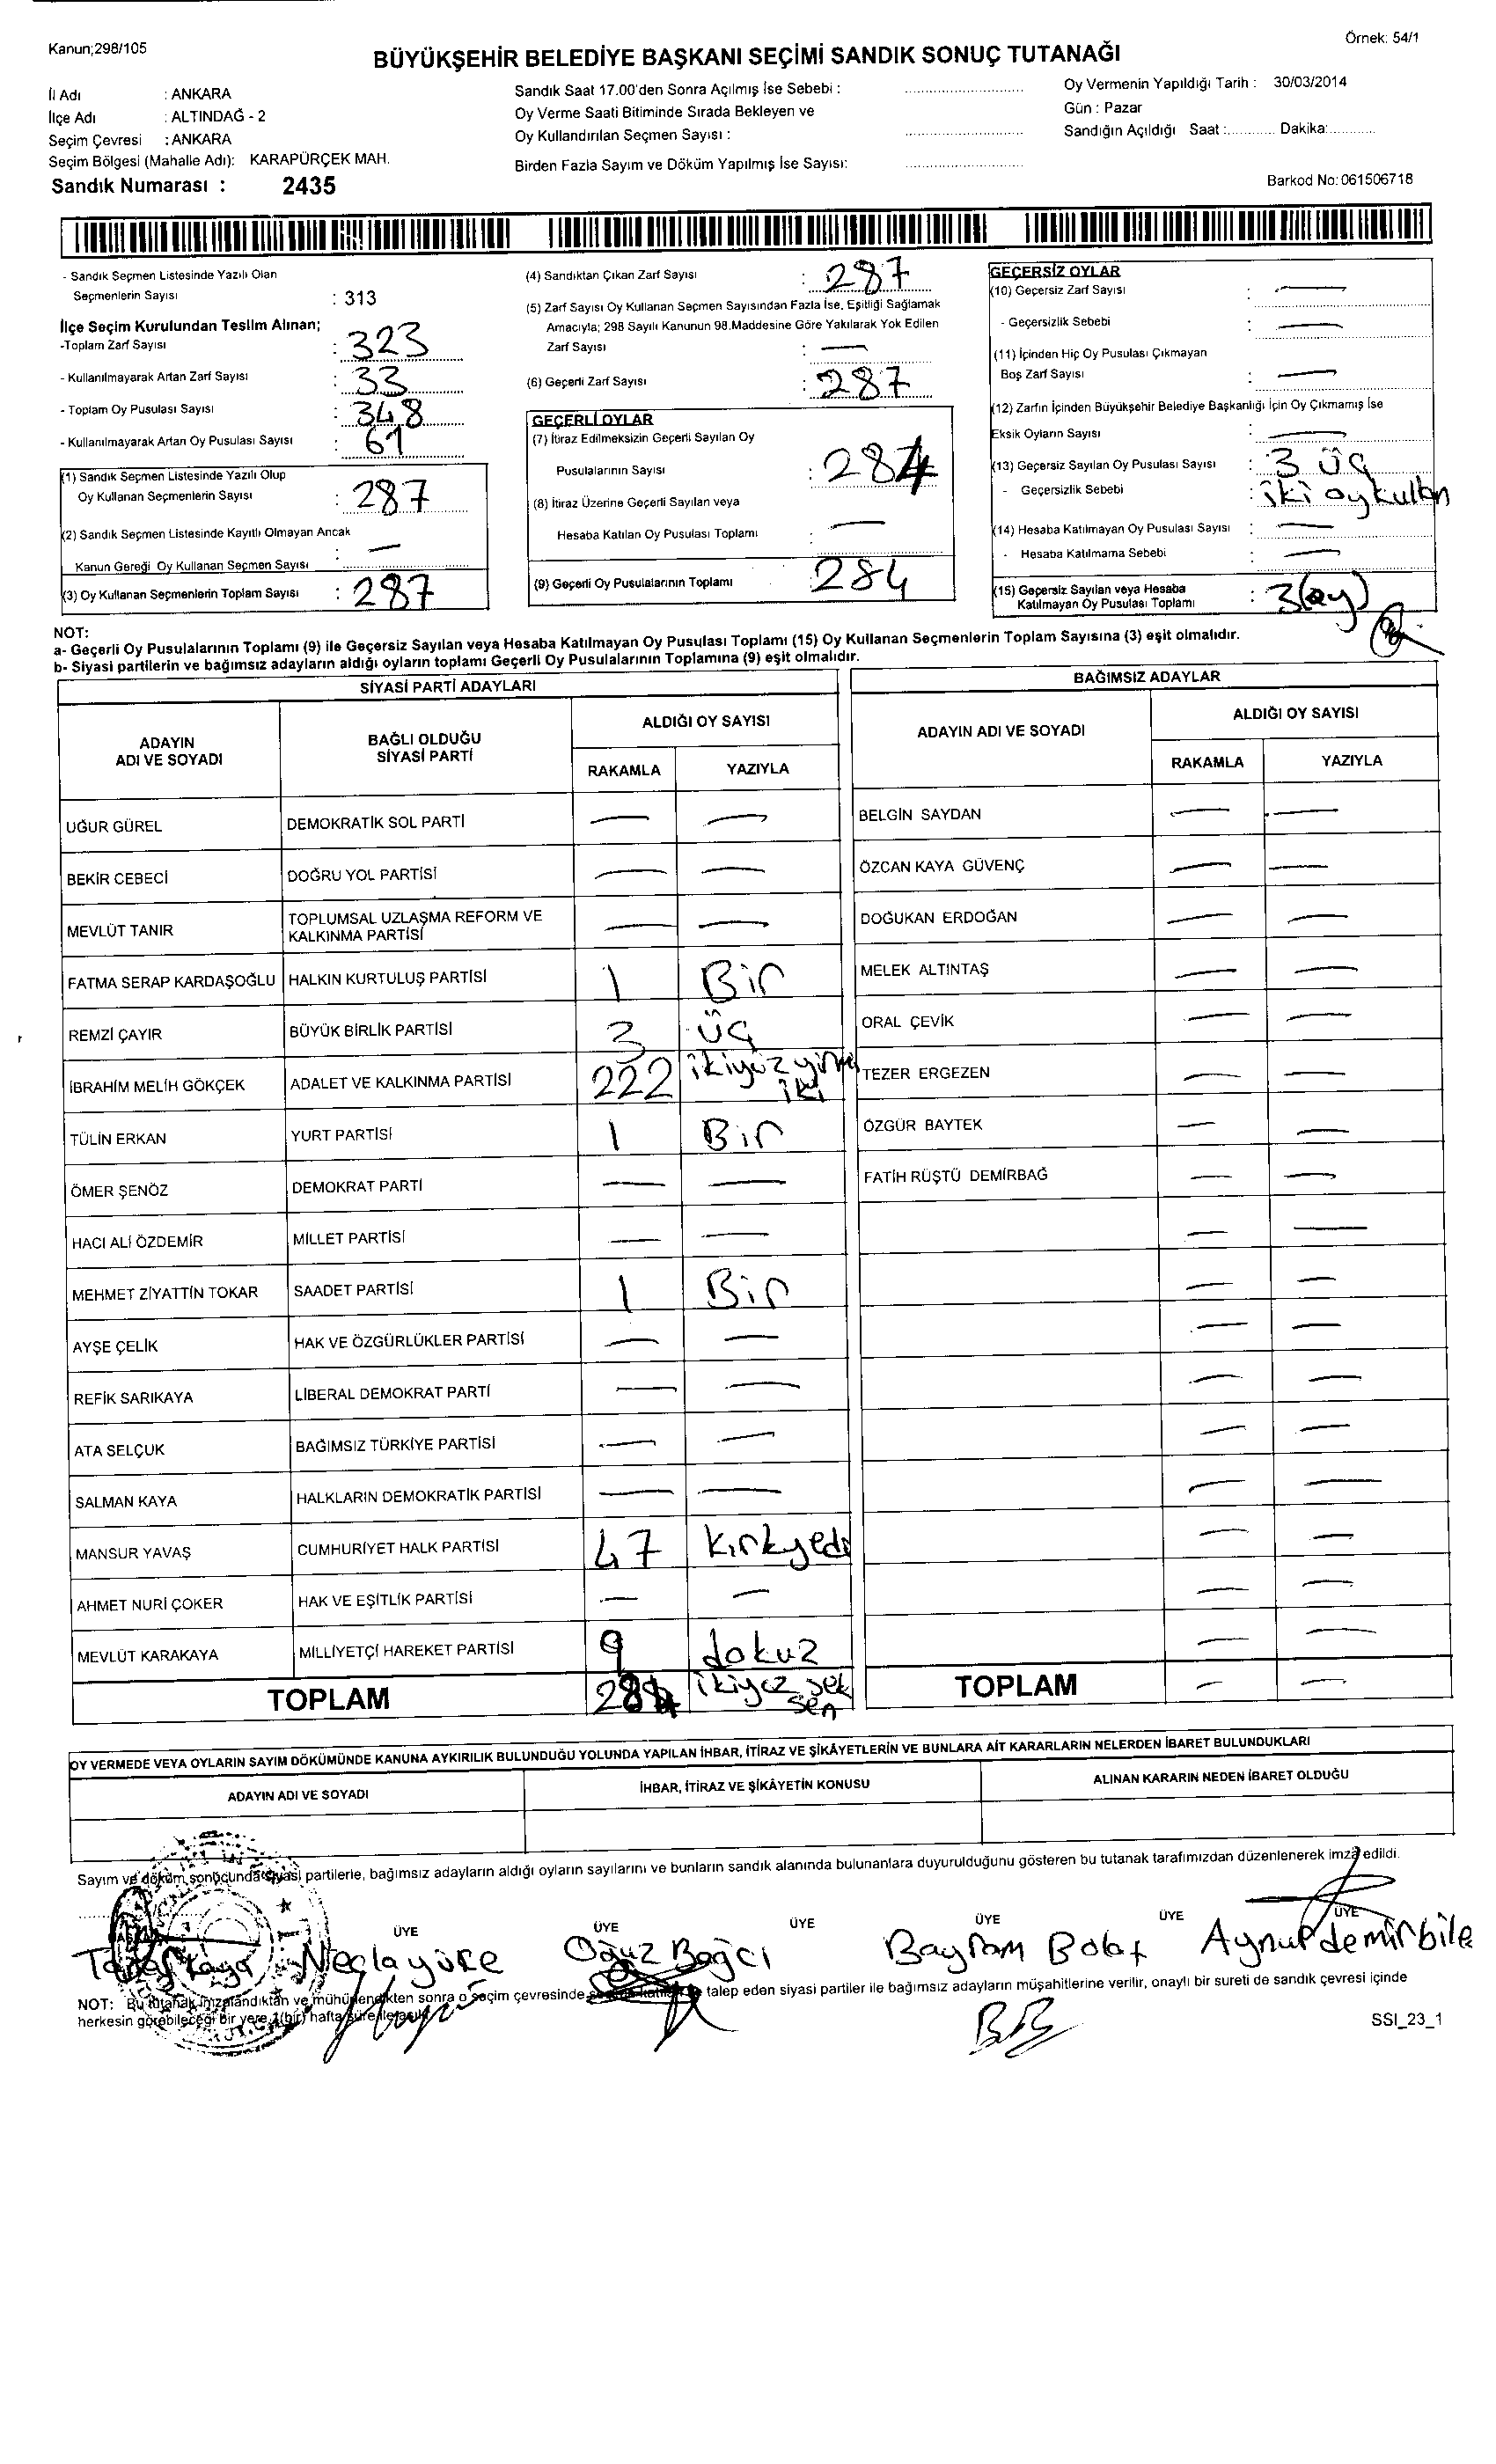 Kanun;298/105
Örnek: 54/1
BÜYÜKŞEHİR BELEDİYE BAŞKANI SEÇİMİ SANDIK SONUÇ TUTANAĞI
İl Adı : ANKARA
İlçe Adı : ALTINDAĞ - 2
Seçim Çevresi : ANKARA
Seçim Bölgesi (Mahalle Adı): KARAPÜRÇEK MAH.
Sandık Numarası : 2435
Sandık Saat 17.00'den Sonra Açılmış İse Sebebi :
Oy Verme Saati Bitiminde Sırada Bekleyen ve
Oy Kullandırılan Seçmen Sayısı :
Birden Fazla Sayım ve Döküm Yapılmış İse Sayısı:
Oy Vermenin Yapıldığı Tarih : 30/03/2014
Gün : Pazar
Sandığın Açıldığı Saat :............ Dakika:............
Barkod No: 061506718
- Sandık Seçmen Listesinde Yazılı Olan
Seçmenlerin Sayısı : 313
İlçe Seçim Kurulundan Teslim Alınan;
-Toplam Zarf Sayısı : 323
- Kullanılmayarak Artan Zarf Sayısı : 33
- Toplam Oy Pusulası Sayısı : 348
- Kullanılmayarak Artan Oy Pusulası Sayısı : 61
(1) Sandık Seçmen Listesinde Yazılı Olup
Oy Kullanan Seçmenlerin Sayısı : 287
(2) Sandık Seçmen Listesinde Kayıtlı Olmayan Ancak
Kanun Gereği Oy Kullanan Seçmen Sayısı : —
(3) Oy Kullanan Seçmenlerin Toplam Sayısı : 287
(4) Sandıktan Çıkan Zarf Sayısı : 287
(5) Zarf Sayısı Oy Kullanan Seçmen Sayısından Fazla İse, Eşitliği Sağlamak
Amacıyla; 298 Sayılı Kanunun 98.Maddesine Göre Yakılarak Yok Edilen
Zarf Sayısı : —
(6) Geçerli Zarf Sayısı : 287
GEÇERLİ OYLAR
(7) İtiraz Edilmeksizin Geçerli Sayılan Oy
Pusulalarının Sayısı : 284
(8) İtiraz Üzerine Geçerli Sayılan veya
Hesaba Katılan Oy Pusulası Toplamı : —
(9) Geçerli Oy Pusulalarının Toplamı : 284
GEÇERSİZ OYLAR
(10) Geçersiz Zarf Sayısı : —
- Geçersizlik Sebebi : —
(11) İçinden Hiç Oy Pusulası Çıkmayan
Boş Zarf Sayısı : —
(12) Zarfın İçinden Büyükşehir Belediye Başkanlığı İçin Oy Çıkmamış İse
Eksik Oyların Sayısı : —
(13) Geçersiz Sayılan Oy Pusulası Sayısı : 3 üç
- Geçersizlik Sebebi : iki oy kullan
(14) Hesaba Katılmayan Oy Pusulası Sayısı : —
- Hesaba Katılmama Sebebi : —
(15) Geçersiz Sayılan veya Hesaba
Katılmayan Oy Pusulası Toplamı : 3(ay)
NOT:
a- Geçerli Oy Pusulalarının Toplamı (9) ile Geçersiz Sayılan veya Hesaba Katılmayan Oy Pusulası Toplamı (15) Oy Kullanan Seçmenlerin Toplam Sayısına (3) eşit olmalıdır.
b- Siyasi partilerin ve bağımsız adayların aldığı oyların toplamı Geçerli Oy Pusulalarının Toplamına (9) eşit olmalıdır.
SİYASİ PARTİ ADAYLARI
ADAYIN
ADI VE SOYADI
BAĞLI OLDUĞU
SİYASİ PARTİ
ALDIĞI OY SAYISI
RAKAMLA YAZIYLA
UĞUR GÜREL DEMOKRATİK SOL PARTİ — —
BEKİR CEBECİ DOĞRU YOL PARTİSİ — —
MEVLÜT TANIR TOPLUMSAL UZLAŞMA REFORM VE
KALKINMA PARTİSİ — —
FATMA SERAP KARDAŞOĞLU HALKIN KURTULUŞ PARTİSİ 1 Bir
REMZİ ÇAYIR BÜYÜK BİRLİK PARTİSİ 3 üç
İBRAHİM MELİH GÖKÇEK ADALET VE KALKINMA PARTİSİ 222 ikiyüz yirmi
iki
TÜLİN ERKAN YURT PARTİSİ 1 Bir
ÖMER ŞENÖZ DEMOKRAT PARTİ — —
HACI ALİ ÖZDEMİR MİLLET PARTİSİ — —
MEHMET ZİYATTİN TOKAR SAADET PARTİSİ 1 Bir
AYŞE ÇELİK HAK VE ÖZGÜRLÜKLER PARTİSİ — —
REFİK SARIKAYA LİBERAL DEMOKRAT PARTİ — —
ATA SELÇUK BAĞIMSIZ TÜRKİYE PARTİSİ — —
SALMAN KAYA HALKLARIN DEMOKRATİK PARTİSİ — —
MANSUR YAVAŞ CUMHURİYET HALK PARTİSİ 47 kırkyedi
AHMET NURİ ÇOKER HAK VE EŞİTLİK PARTİSİ — —
MEVLÜT KARAKAYA MİLLİYETÇİ HAREKET PARTİSİ 9 dokuz
TOPLAM 284 ikiyüz sek
sen
BAĞIMSIZ ADAYLAR
ADAYIN ADI VE SOYADI
ALDIĞI OY SAYISI
RAKAMLA YAZIYLA
BELGİN SAYDAN — —
ÖZCAN KAYA GÜVENÇ — —
DOĞUKAN ERDOĞAN — —
MELEK ALTINTAŞ — —
ORAL ÇEVİK — —
TEZER ERGEZEN — —
ÖZGÜR BAYTEK — —
FATİH RÜŞTÜ DEMİRBAĞ — —
TOPLAM — —
OY VERMEDE VEYA OYLARIN SAYIM DÖKÜMÜNDE KANUNA AYKIRILIK BULUNDUĞU YOLUNDA YAPILAN İHBAR, İTİRAZ VE ŞİKÂYETLERİN VE BUNLARA AİT KARARLARIN NELERDEN İBARET BULUNDUKLARI
ADAYIN ADI VE SOYADI İHBAR, İTİRAZ VE ŞİKÂYETİN KONUSU ALINAN KARARIN NEDEN İBARET OLDUĞU
Sayım ve döküm sonucunda siyasi partilerle, bağımsız adayların aldığı oyların sayılarını ve bunların sandık alanında bulunanlara duyurulduğunu gösteren bu tutanak tarafımızdan düzenlenerek imza edildi.
ÜYE ÜYE ÜYE ÜYE ÜYE ÜYE
Kaya Necla yüce Oğuz Bağcı Bayram Bolat Aynur demirbile
NOT: Bu tutanak imzalandıktan ve mühürlendikten sonra o seçim çevresinde talep eden siyasi partiler ile bağımsız adayların müşahitlerine verilir, onaylı bir sureti de sandık çevresi içinde
herkesin görebileceği bir yere 1(bir) hafta süre ile asılır.
SSI_23_1